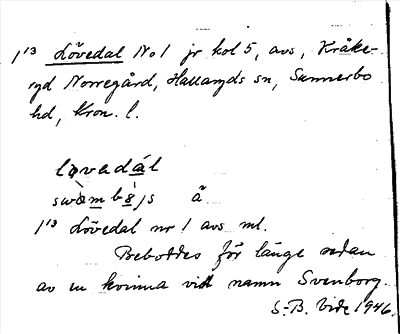 1¹³ Lövedal No 1 jr kol 5, avs, Kråke-
ryd Norregård, Hallaryds sn, Sunnerbo
hd, Kron. l.
lǫvadál
å
1¹³ Lövedal nr 1 avs ml.
Beboddes för länge sedan
av en kvinna vid namn Svenborg.
S.-B. Vide 1946.